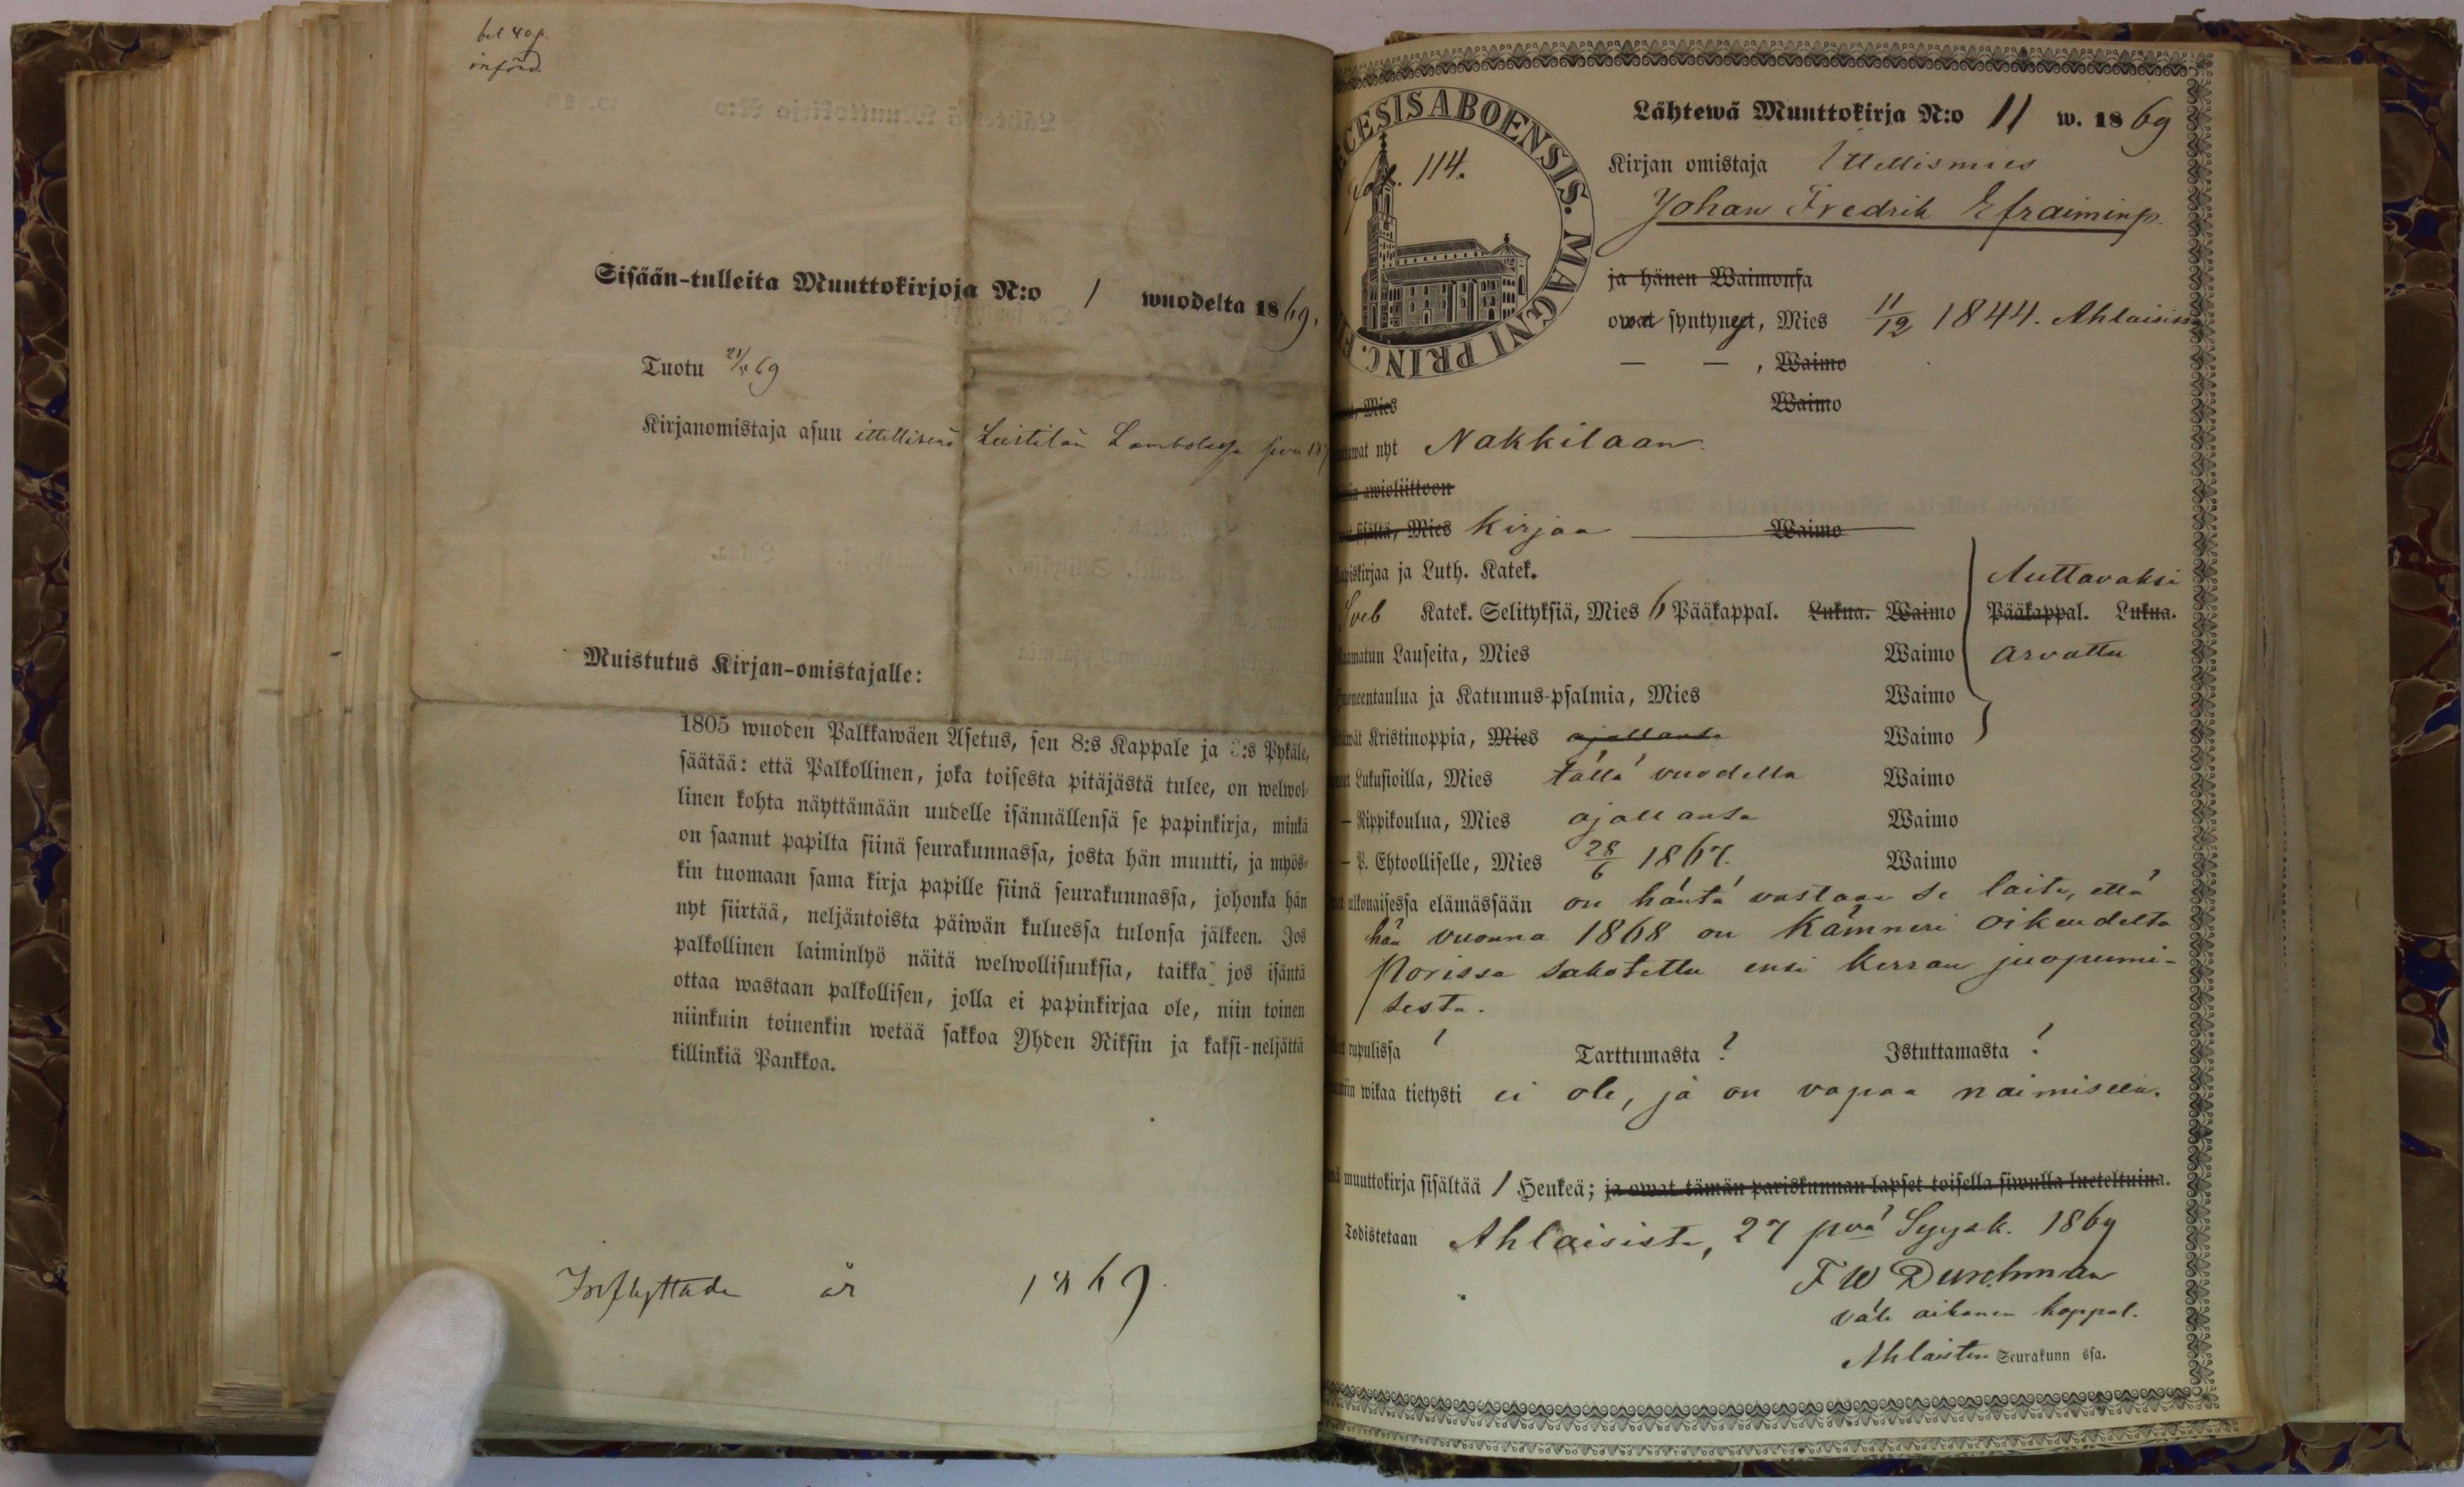 bet 40 p.
införd.
Sisään-tulleita Muuttokirjoja N:o 1 wuodelta 1869.
Tuotu 69
Kirjanomistaja asuu ittellisenä Leistilän
Muistutus Kirjan-omistajalle:
1805 wuoden Palkkawäen Asetus, sen 8:s Kappale ja :s Pykäle,
säätää: että Palkollinen, joka toisesta pitäjästä tulee, on welwol-
linen kohta näyttämään uudelle isännällensä se papinkirja, minkä
on saanut papilta siinä seurakunnassa, josta hän muutti, ja myös-
kin tuomaan sama kirja papille siinä seurakunnassa, johonka hän
nyt siirtää, neljäntoista päiwän kuluessa tulonsa jälkeen. Jos
palkollinen laiminlyö näitä welwollisuuksia, taikka jos isäntä
ottaa wastaan palkollisen, jolla ei papinkirjaa ole, niin toinen
niinkuin toinenkin wetää sakkoa Yhden Riksin ja kaksi-neljättä
killinkiä Pankkoa.
Inflyttade år 1869.
CESIS ABOENSIS. MAGNI PRINC.
114.
Lähtewä Muuttokirja N:o 11 w. 1869
Kirjan omistaja Ittellismies
Johan Fredrik Efraiminp.
ja hänen Waimonsa
owat syntyneet, Mies 11/12 1844. Ahlaisissa
— — , Waimo
Mies Waimo
nyt Nakkilaan.
awioliittoon
sisältä, Mies kirjaa Waimo
piskirjaa ja Luth. Katek.
Sveb Katek. Selityksiä, Mies 6 Pääkappal. Lukua. Waimo
Auttavaksi
Pääkappal. Lukua.
arvattu
amatun Lauseita, Mies Waimo
neentaulua ja Katumus-psalmia, Mies Waimo
Kristinoppia, Mies ajallansa Waimo
Lukusioilla, Mies tällä vuodella Waimo
— Rippikoulua, Mies ajallansa Waimo
— P. Ehtoolliselle, Mies 28/6 1867. Waimo
ulkonaisessa elämässään on häntä vastaan se laita, että
hän vuonna 1868 on Kämneri oikeudelta
Porissa sakotettu ensi kerran juopumi-
sesta.
rupulissa ? Tarttumasta ? Istuttamasta ?
wikaa tietysti ei ole, ja on vapaa naimiseen.
muuttokirja sisältää 1 Henkeä; ja owat tämän pariskunnan lapset toisella siwulla lueteltuina.
Todistetaan Ahlaisista, 27 pvä Syysk. 1869
F W Durchman
väli aikanen kappal.
Ahlaisten Seurakunn ssa.